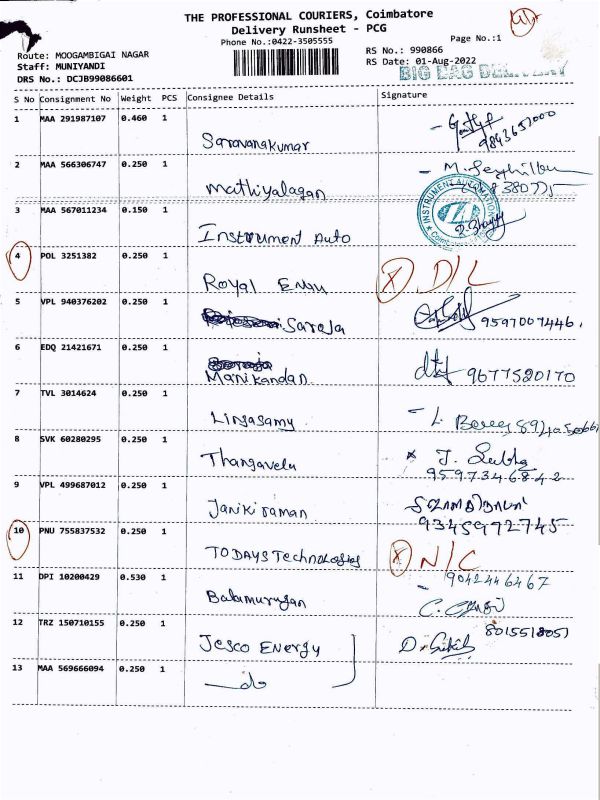 THE PROFESSIONAL COURIERS, Coimbatore
Delivery Runsheet - PCG
Phone No.:0422-3505555
Page No.:1
Route: MOOGAMBIGAI NAGAR
Staff: MUNIYANDI
DRS No.: DCJB99086601
RS No.: 990866
RS Date: 01-Aug-2022
BIG BAG DELIVERY
S No Consignment No Weight PCS Consignee Details Signature
1 MAA 291987107 0.460 1
Saravanakumar 9843652000
2 MAA 566306747 0.250 1
Mathiyalagan
3 MAA 567011234 0.150 1
Instrument Auto
4 POL 3251382 0.250 1
Royal X D/L
5 VPL 940376202 0.250 1
Saroja 9597007446.
6 EDQ 21421671 0.250 1
Manikandan 9677520170
7 TVL 3014624 0.250 1
Lingasamy
8 SVK 60280295 0.250 1
Thangavelu 9597346842
9 VPL 499687012 0.250 1
Janikiraman 9345972745
10 PNU 755837532 0.250 1
TODAYS Technologies X N/C
11 DPI 10200429 0.530 1 9042446467
Balamurugan
12 TRZ 150710155 0.250 1
Jesco Energy 8015518051
13 MAA 569666094 0.250 1
do